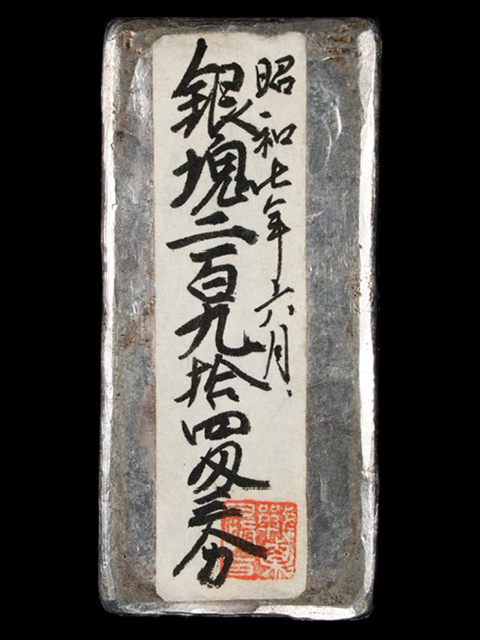 昭和七年五六月
銀塊二百九拾四匁三分